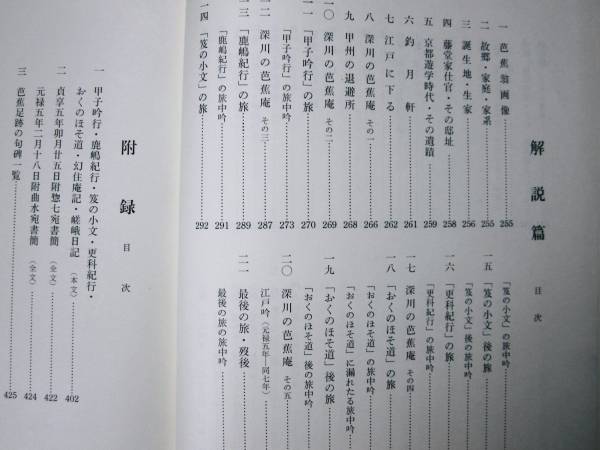 解説篇 目次
一 芭蕉翁画像 255
二 故郷・家庭・家系 255
三 誕生地・生家 256
四 藤堂家仕官・その邸址 258
五 京都遊学時代・その遺蹟 259
六 釣月軒 261
七 江戸に下る 262
八 深川の芭蕉庵 その一 266
九 甲州の退避所 268
一〇 深川の芭蕉庵 その二 269
一一 「甲子吟行」の旅 270
「甲子吟行」の旅中吟 273
一二 深川の芭蕉庵 その三 287
一三 「鹿嶋紀行」の旅 289
「鹿嶋紀行」の旅中吟 291
一四 「笈の小文」の旅 292
「笈の小文」の旅中吟
一五 「笈の小文」後の旅
「笈の小文」後の旅中吟
一六 「更科紀行」の旅
「更科紀行」の旅中吟
一七 深川の芭蕉庵 その四
一八 「おくのほそ道」の旅
「おくのほそ道」の旅中吟
「おくのほそ道」に漏れたる旅中吟
一九 「おくのほそ道」後の旅
「おくのほそ道」後の旅中吟
二〇 深川の芭蕉庵 その五
江戸吟(元禄五年―同七年)
二一 最後の旅・歿後
最後の旅の旅中吟
附録 目次
一 甲子吟行・鹿嶋紀行・笈の小文・更科紀行・
おくのほそ道・幻住庵記・嵯峨日記(本文) 402
二 貞享五年卯月廿五日附惣七宛書簡(全文) 422
元禄五年二月十八日附曲水宛書簡(全文) 424
三 芭蕉足跡の句碑一覧 425